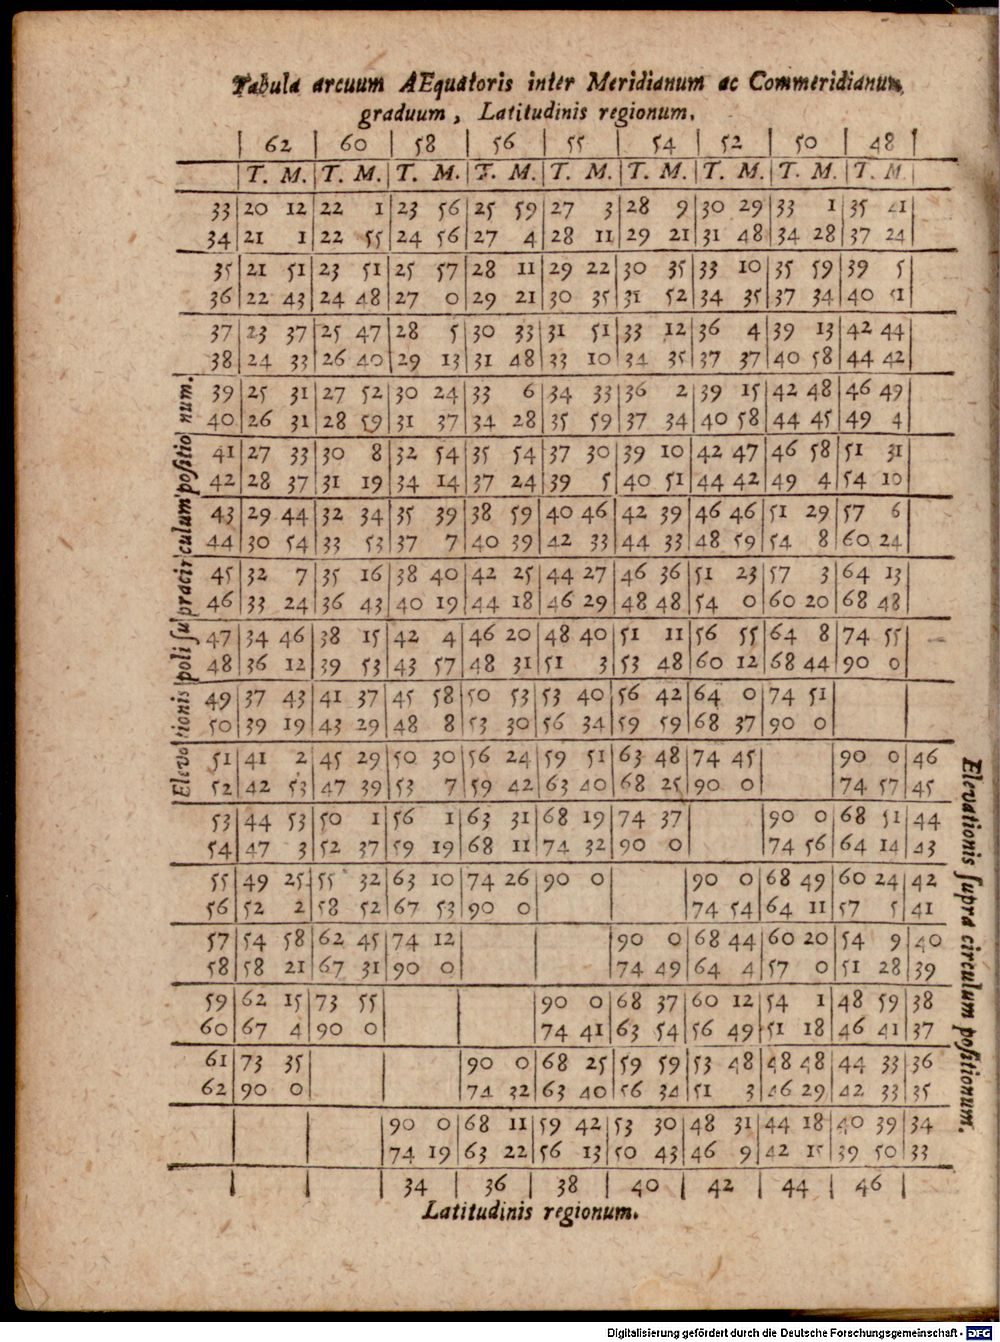 Tabula arcuum AEquatoris inter Meridianum ac Commeridianum,
graduum, Latitudinis regionum.
62 60 58 56 55 54 52 50 48
T. M. T. M. T. M. T. M. T. M. T. M. T. M. T. M. T. M.
33 20 12 22 1 23 56 25 59 27 3 28 9 30 29 33 1 35 41
34 21 1 22 55 24 56 27 4 28 11 29 21 31 48 34 28 37 24
35 21 51 23 51 25 57 28 11 29 22 30 35 33 10 35 59 39 5
36 22 43 24 48 27 0 29 21 30 35 31 52 34 35 37 34 40 51
37 23 37 25 47 28 5 30 33 31 51 33 12 36 4 39 13 42 44
38 24 33 26 40 29 13 31 48 33 10 34 35 37 37 40 58 44 42
39 25 31 27 52 30 24 33 6 34 33 36 2 39 15 42 48 46 49
40 26 31 28 59 31 37 34 28 35 59 37 34 40 58 44 45 49 4
41 27 33 30 8 32 54 35 54 37 30 39 10 42 47 46 58 51 31
42 28 37 31 19 34 14 37 24 39 5 40 51 44 42 49 4 54 10
43 29 44 32 34 35 39 38 59 40 46 42 39 46 46 51 29 57 6
44 30 54 33 53 37 7 40 39 42 33 44 33 48 59 54 8 60 24
45 32 7 35 16 38 40 42 25 44 27 46 36 51 23 57 3 64 13
46 33 24 36 43 40 19 44 18 46 29 48 48 54 0 60 20 68 48
47 34 46 38 15 42 4 46 20 48 40 51 11 56 55 64 8 74 55
48 36 12 39 53 43 57 48 31 51 3 53 48 60 12 68 44 90 0
49 37 43 41 37 45 58 50 53 53 40 56 42 64 0 74 51
50 39 19 43 29 48 8 53 30 56 34 59 59 68 37 90 0
51 41 2 45 29 50 30 56 24 59 51 63 48 74 45 90 0 46
52 42 53 47 39 53 7 59 42 63 40 68 25 90 0 74 57 45
53 44 53 50 1 56 1 63 31 68 19 74 37 90 0 68 51 44
54 47 3 52 37 59 19 68 11 74 32 90 0 74 56 64 14 43
55 49 25 55 32 63 10 74 26 90 0 90 0 68 49 60 24 42
56 52 2 58 52 67 53 90 0 74 54 64 11 57 5 41
57 54 58 62 45 74 12 90 0 68 44 60 20 54 9 40
58 58 21 67 31 90 0 74 49 64 4 57 0 51 28 39
59 62 15 73 55 90 0 68 37 60 12 54 1 48 59 38
60 67 4 90 0 74 41 63 54 56 49 51 18 46 41 37
61 73 35 90 0 68 25 59 59 53 48 48 48 44 33 36
62 90 0 74 32 63 40 56 34 51 3 46 29 42 33 35
90 0 68 11 59 42 53 30 48 31 44 18 40 39 34
74 19 63 22 56 13 50 43 46 9 42 15 39 50 33
34 36 38 40 42 44 46
Latitudinis regionum.
Elevationis poli supra circulum positionum.
Elevationis supra circulum positionum.
Digitalisierung gefördert durch die Deutsche Forschungsgemeinschaft - DFG